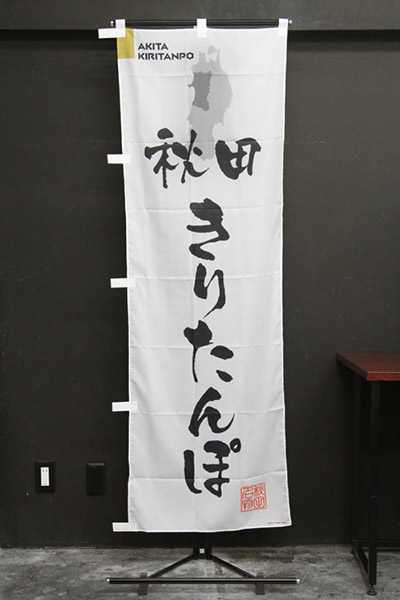 AKITA
KIRITANPO
秋田
きりたんぽ
秋田
名物